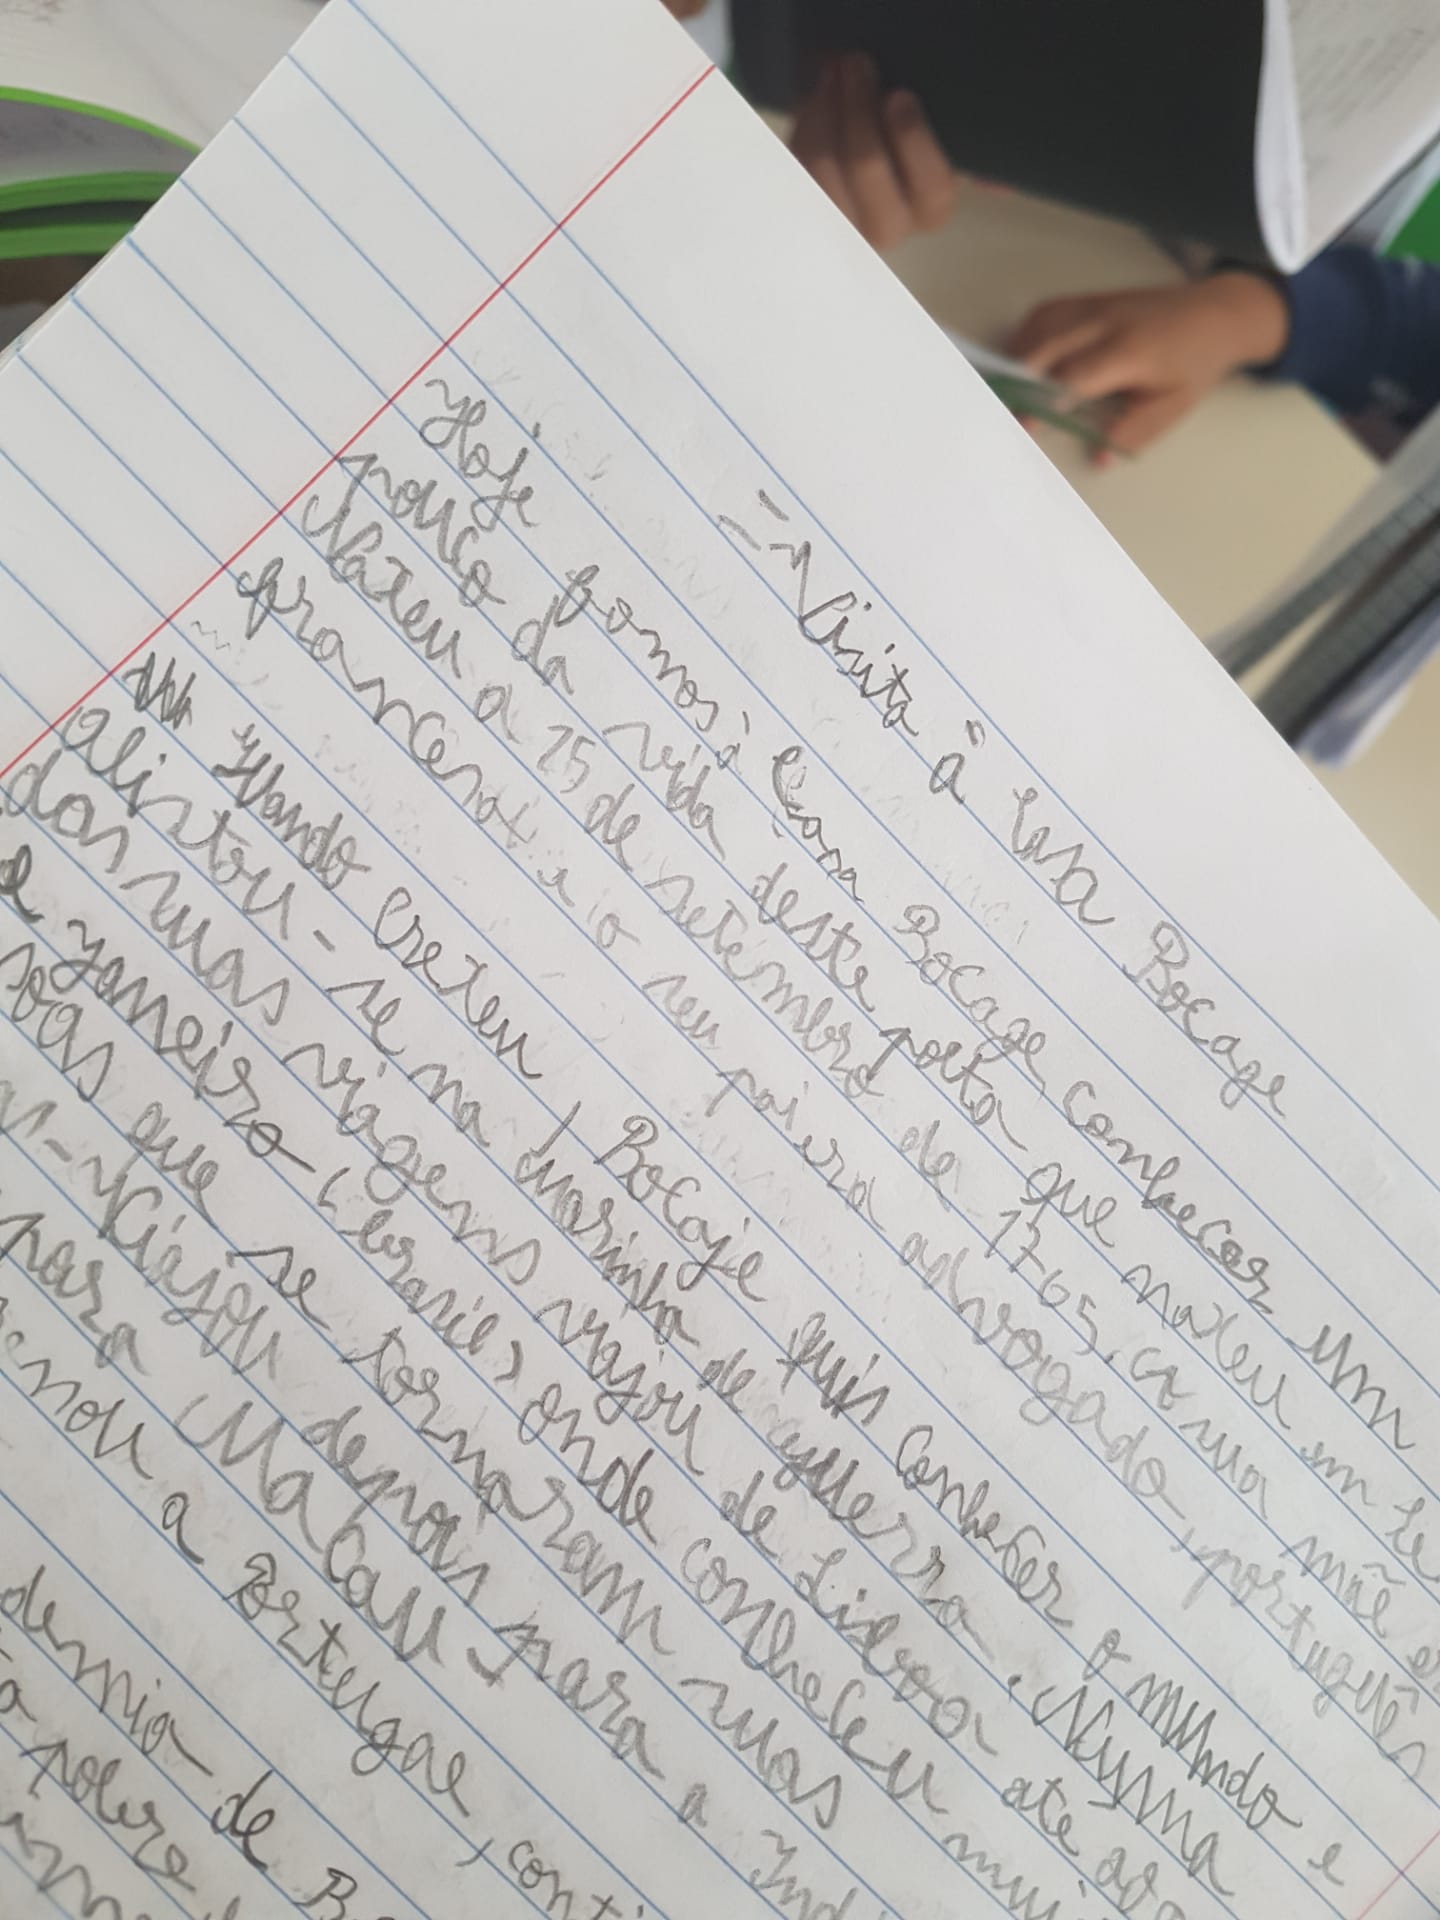 = Visita à Casa Bocage
Hoje fomos à Casa Bocage, conhecer um
pouco da vida deste poeta que nasceu em
Nasceu a 15 de setembro de 1765, a sua mãe
francesa e o seu pai era advogado, português
Quando cresceu, Bocaje quis conhecer o mundo e
alistou-se na marinha de guerra. Numa
das suas viagens viajou de Lisboa até ao
de Janeiro (brasil) onde conheceu
que se tornaram suas
Viajou depois para a
para Macau
a Portugal,
de
pobre